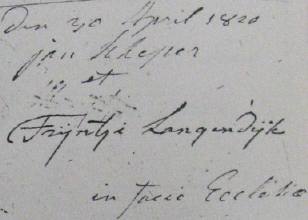 Den 30 April 1820
jan Scheper
et
Frijntje Langendijk
in facie Ecclesiae